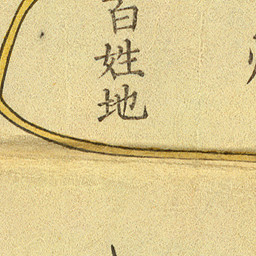 百姓地